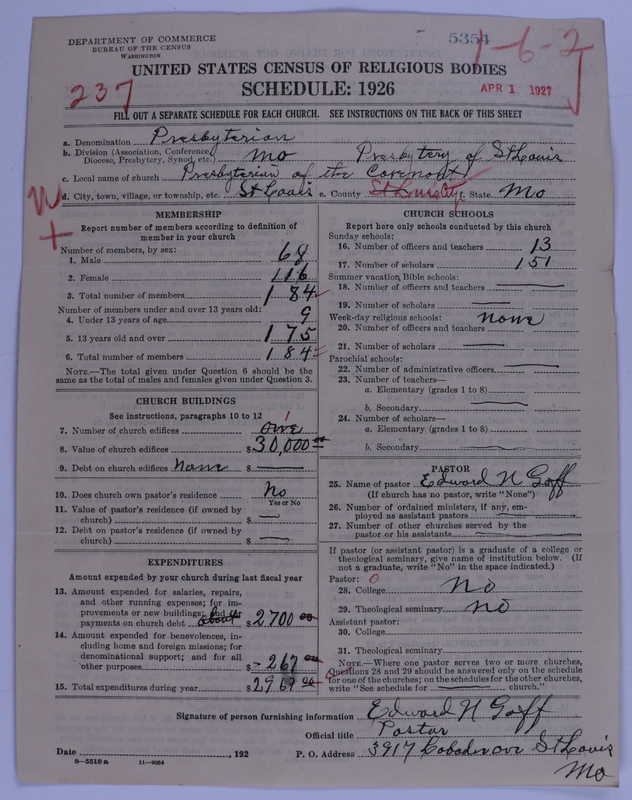 DEPARTMENT OF COMMERCE
BUREAU OF THE CENSUS
WASHINGTON
5354
1-6-2
UNITED STATES CENSUS OF RELIGIOUS BODIES
SCHEDULE: 1926
237
APR 1 1927
FILL OUT A SEPARATE SCHEDULE FOR EACH CHURCH. SEE INSTRUCTIONS ON THE BACK OF THIS SHEET
a. Denomination Presbyterian
b. Division (Association, Conference, Diocese, Presbytery, Synod, etc.) Mo Presbytery of St Louis
c. Local name of church Presbyterian of the Covenant
d. City, town, village, or township, etc. St Louis e. County f. State Mo
MEMBERSHIP
Report number of members according to definition of
member in your church
Number of members, by sex:
1. Male 68
2. Female 116
3. Total number of members 184
Number of members under and over 13 years old:
4. Under 13 years of age 9
5. 13 years old and over 175
6. Total number of members 184
NOTE.—The total given under Question 6 should be
same as the total of males and females given under Question 3.
CHURCH BUILDINGS
See instructions, paragraphs 10 to 12
7. Number of church edifices one 1
8. Value of church edifices $30,000 00
9. Debt on church edifices None $
10. Does church own pastor's residence No
Yes or No
11. Value of pastor's residence (if owned by
church) $
12. Debt on pastor's residence (if owned by
church) $
EXPENDITURES
Amount expended by your church during last fiscal year
13. Amount expended for salaries, repairs,
and other running expenses; for im-
provements or new buildings; and for
payments on church debt about $2700 00
14. Amount expended for benevolences, in-
cluding home and foreign missions; for
denominational support; and for all
other purposes $ 267 00
15. Total expenditures during year $2967 00
CHURCH SCHOOLS
Report here only schools conducted by this church
Sunday schools:
16. Number of officers and teachers 13
17. Number of scholars 151
Summer vacation Bible schools:
18. Number of officers and teachers
19. Number of scholars
Week-day religious schools: None
20. Number of officers and teachers
21. Number of scholars
Parochial schools:
22. Number of administrative officers
23. Number of teachers—
a. Elementary (grades 1 to 8)
b. Secondary
24. Number of scholars—
a. Elementary (grades 1 to 8)
b. Secondary
PASTOR
25. Name of pastor Edward N Goff
(If church has no pastor, write "None")
26. Number of ordained ministers, if any, em-
ployed as assistant pastors
27. Number of other churches served by the
pastor or his assistants
If pastor (or assistant pastor) is a graduate of a college or
theological seminary, give name of institution below. (If
not a graduate, write "No" in the space indicated.)
Pastor: 0
28. College No
29. Theological seminary No
Assistant pastor:
30. College
31. Theological seminary
NOTE.—Where one pastor serves two or more churches,
Questions 28 and 29 should be answered only on the schedule
for one of the churches; on the schedules for the other churches,
write "See schedule for church."
Signature of person furnishing information Edward N Goff
Official title Pastor
Date , 192 P. O. Address 3917 St Louis
8—5518 a 11—9054
Mo